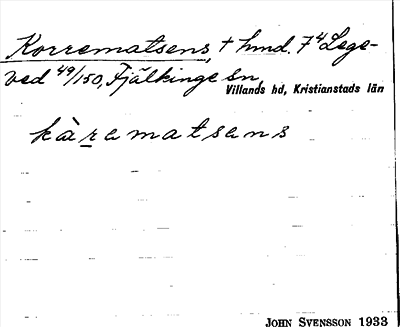 Korrematsens, + hmd. 7⁴ Lege-
ved 49/150, Fjälkinge sn,
Villands hd, Kristianstads län
kàramatsens
JOHN SVENSSON 1933